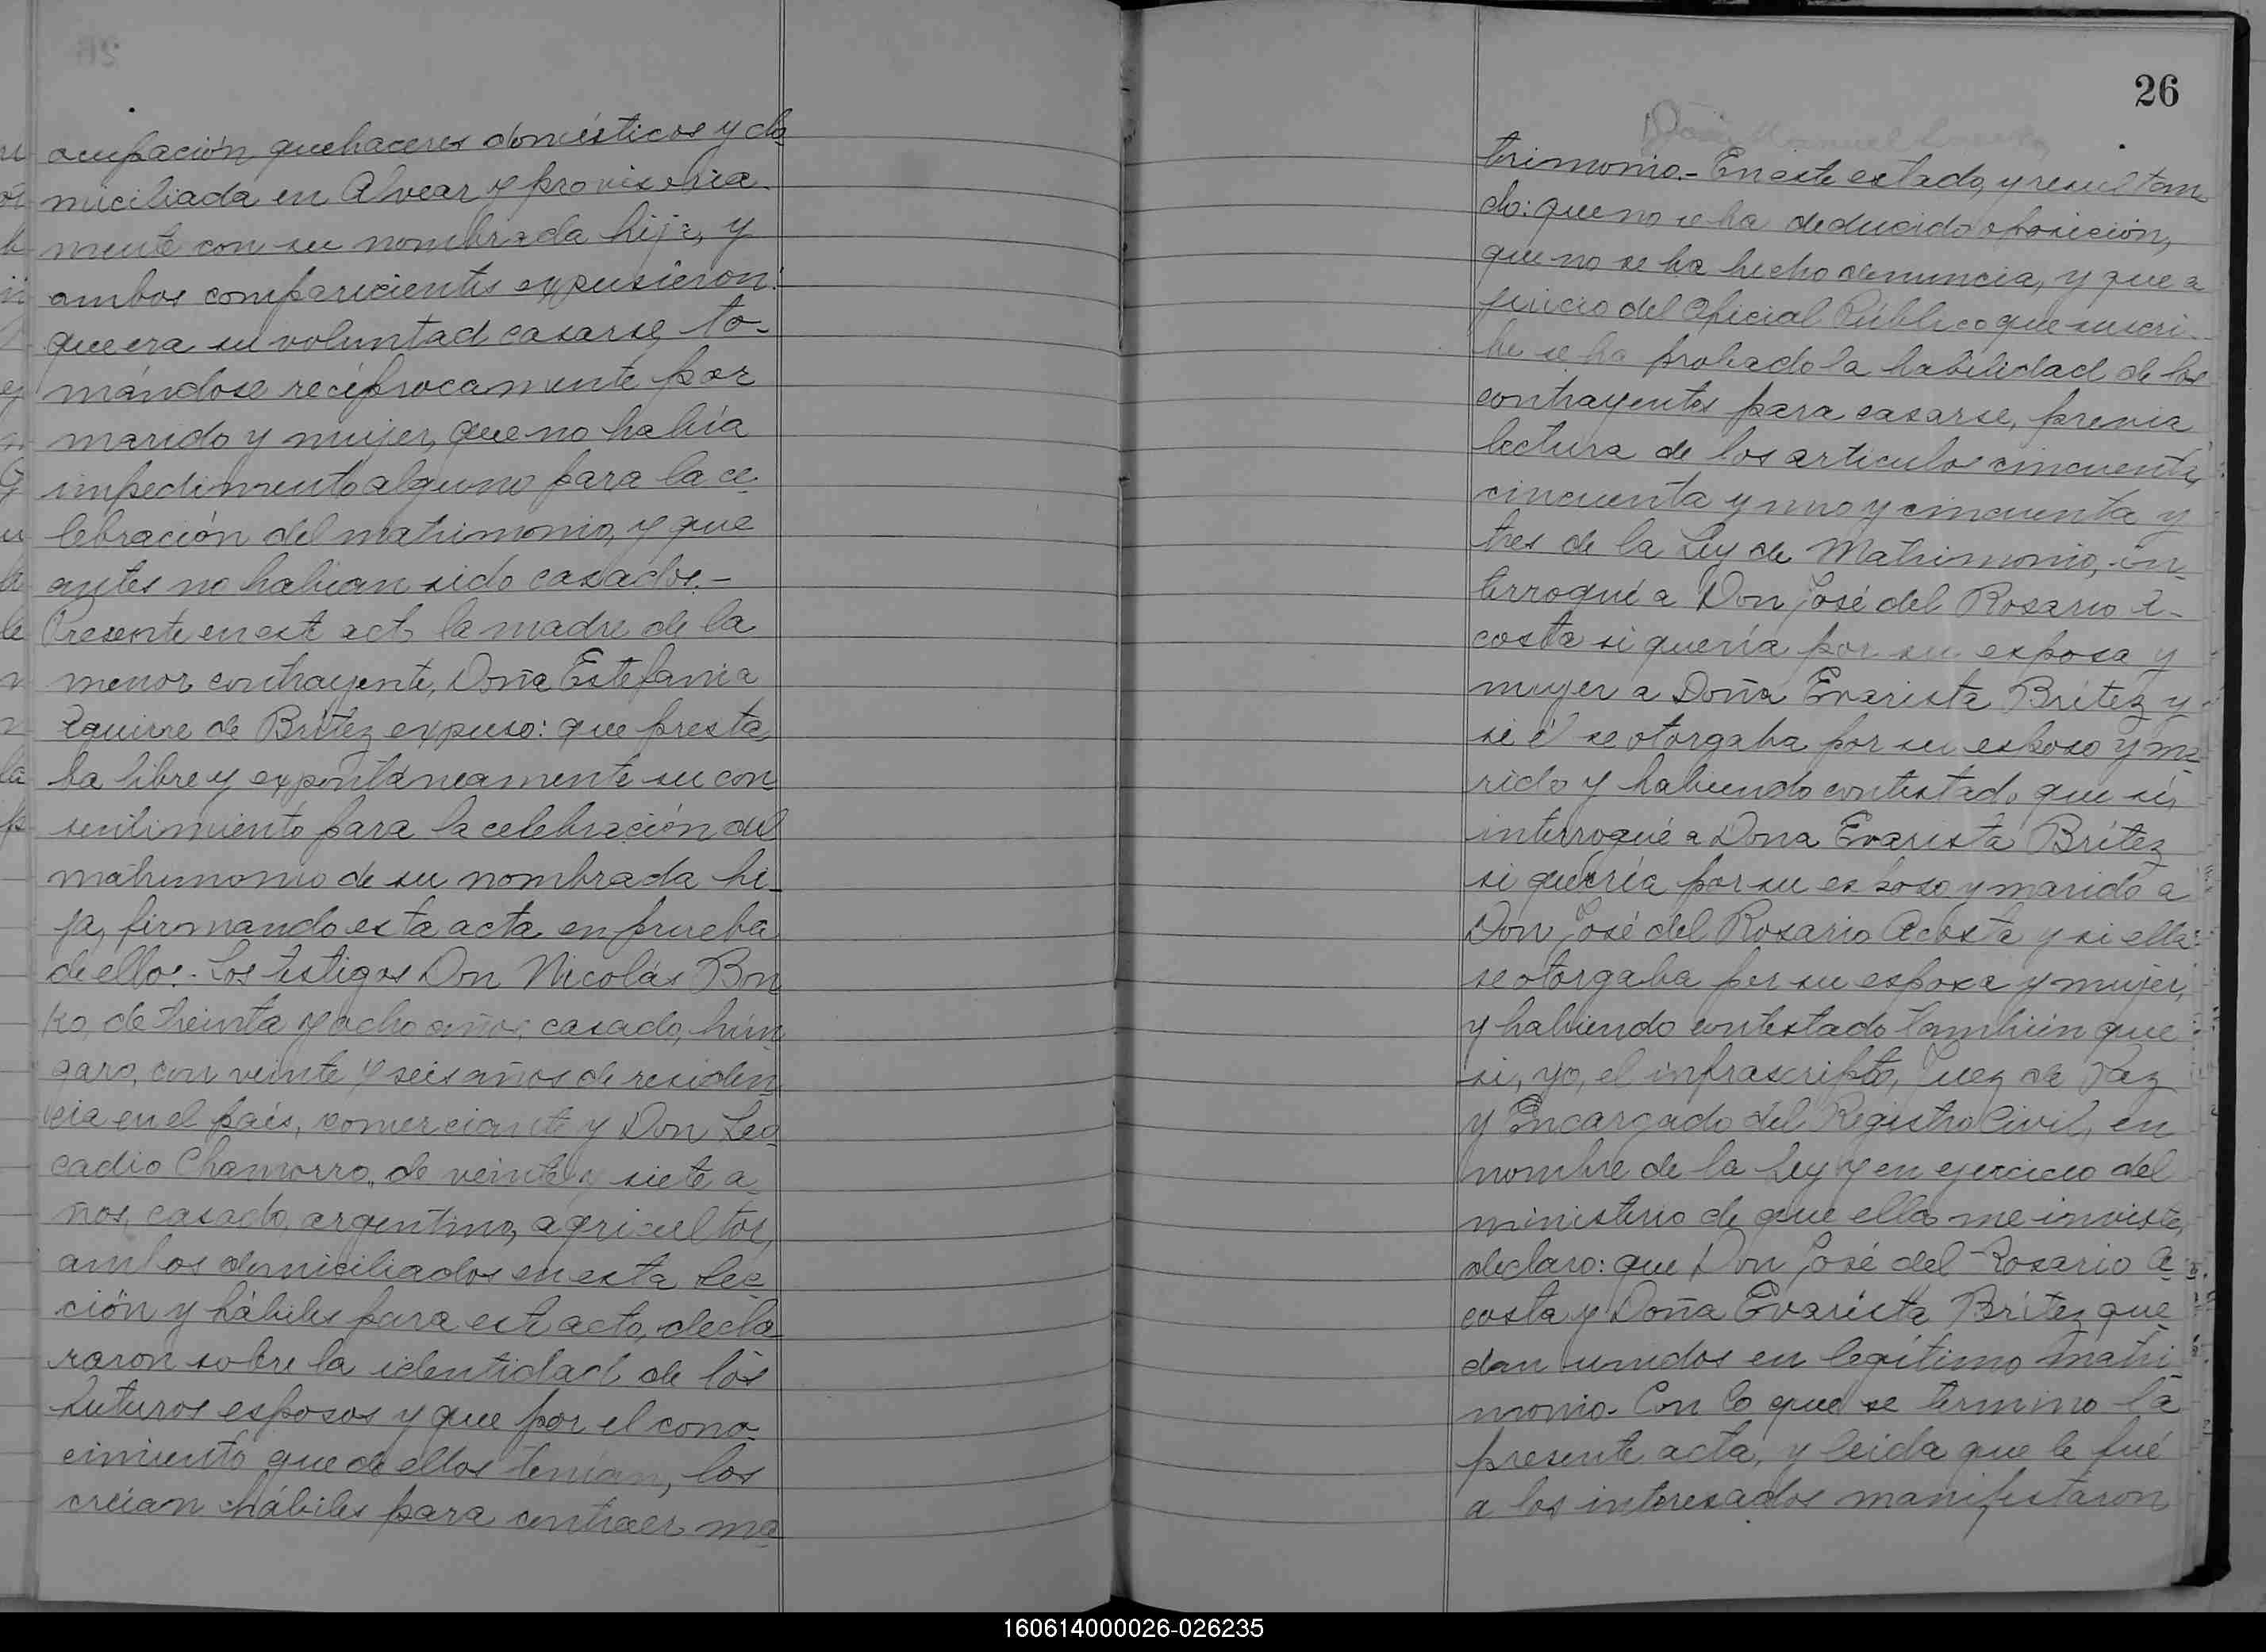 ocupación quehaceres domésticos y do
miciliada en Alvear y provisoria
mente con su nombrada hija, y
ambos comparicientes expusieron:
que era su voluntad casarse, to-
mándose recíprocamente por
marido y mujer, que no había
impedimento alguno para la ce-
lebración del matrimonio, y que
antes no habian sido casados.-
Presente en este acto la madre de la
menor contrayente, Doña Estefania
Aguirre de Brítez expuso: que presta
ba libre y expontáneamente su con
sentimiento para la celebración del
matrimonio de su nombrada hi-
ja, firmando esta acta en prueba
de ello.- Los testigos Don Nicolás Bon
ko, de treinta y ocho años, casado, hún
garo, con veinte y seis años de residen
cia en el país, comerciante y Don Leo
cadio Chamorro, de veinte y siete a-
ños, casado, argentino, agricultor,
ambos domiciliados en esta Sec
ción y hábiles para este acto, decla
raron sobre la identidad de los
futuros esposos y que por el cono-
cimiento que de ellos tenían, los
creían hábiles para contraer ma
26
trimonio.- En este estado, y resultan
do: que no se ha deducido oposición,
que no se ha hecho denuncia, y que a
juicio del Oficial Público que suscri-
be se ha probado la habilidad de los
contrayentes para casarse, previa
lectura de los articulos cincuenta,
cincuenta y uno y cincuenta y
tres de la Ley de Matrimonio, in-
terrogué a Don José del Rosario A-
costa si quería por su esposa y
mujer a Doña Evarista Brítez y
si él se otorgaba por su esposo y ma
rido y habiendo contestado que sí,
interrogué a Dona Evarista Brítez
si querría por su esposo y marido a
Don José del Rosario Acosta y si ella
se otorgaba por su esposa y mujer,
y habiendo contestado también que
si, yo, el infrascripto, Juez de Paz
y Encargado del Registro Civil, en
nombre de la Ley y en ejercicio del
ministerio de que ella me inviste,
declaro: que Don José del Rosario A-
costa y Doña Evarista Brítez que
dan unidos en legítimo matri
monio.- Con lo que se termino la
presente acta, y leída que le fué
a los interesados manifestaron
160614000026-026235